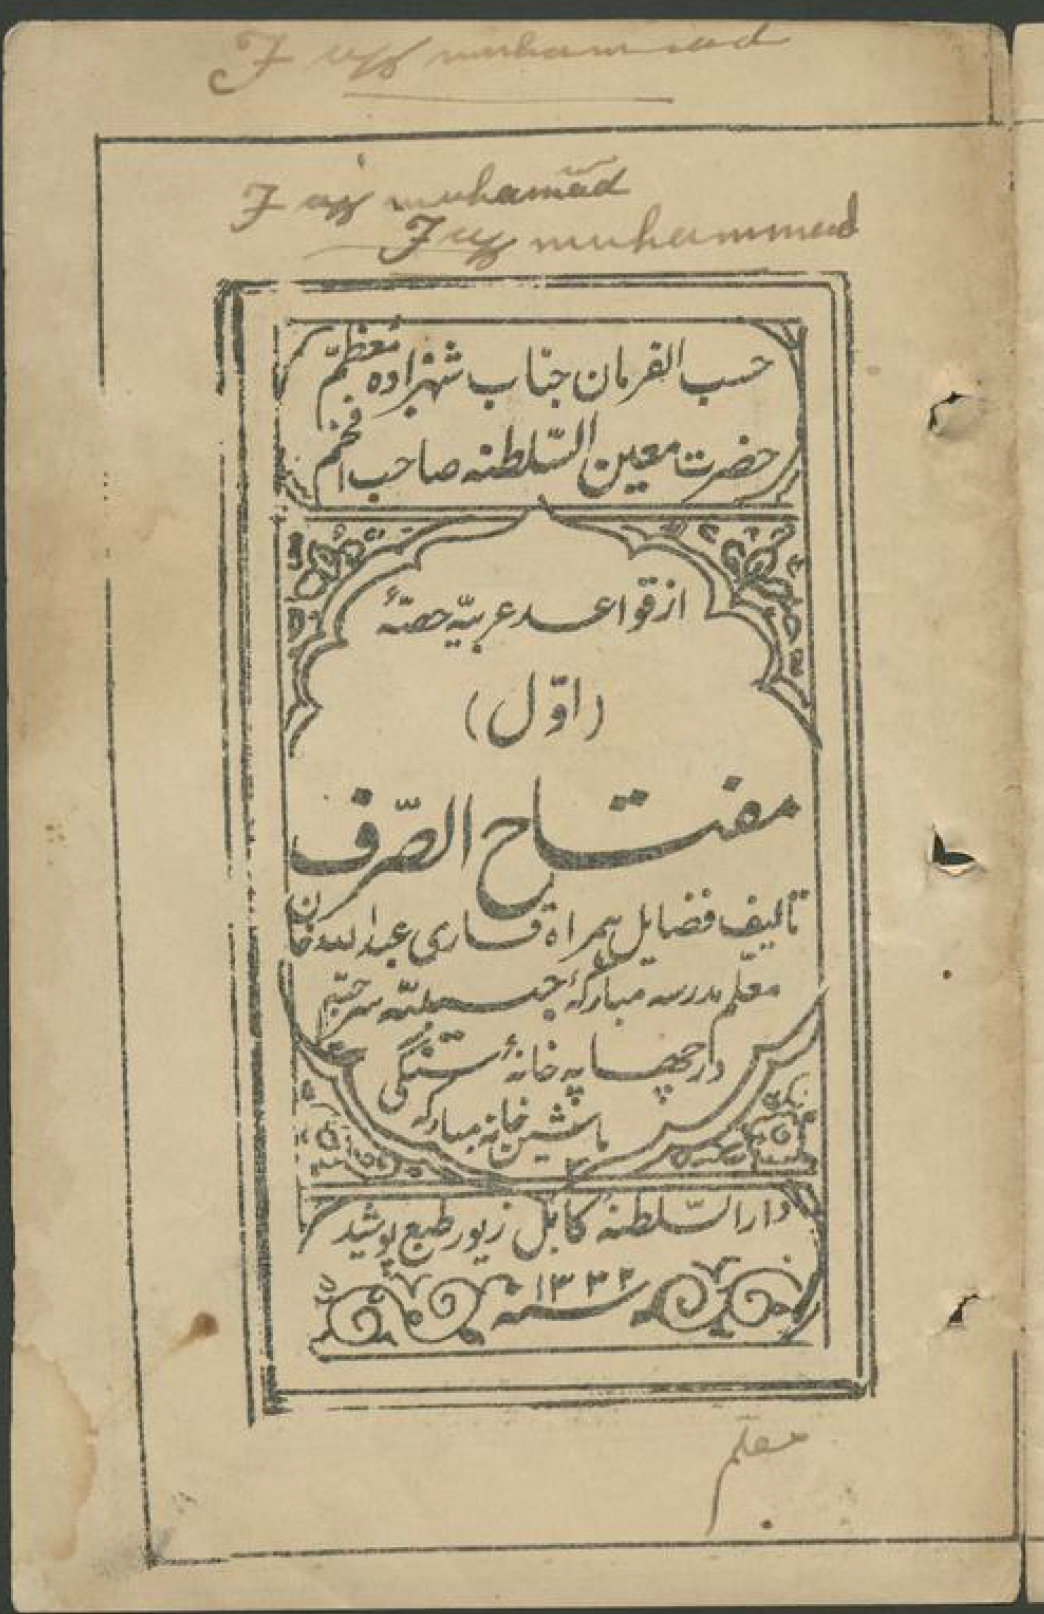 muhammad
muhammad
muhammad
حسب الفرمان جناب شهزاده معظّم
حضرت معین السّلطنه صاحب افخم
از قواعد عربیّه حصّهٔ
(اوّل)
مفتاح الصّرف
تألیف فضایل همراه قاری عبدالله خان
معلّم مدرسه مبارکهٔ حبیبیّه سرحبیّه
در چهاپه خانهٔ سنگی
ماشین خانه مبارکه
دارالسّلطنهٔ کابل زیور طبع پوشید
سنه ۱۳۳۲
معلم